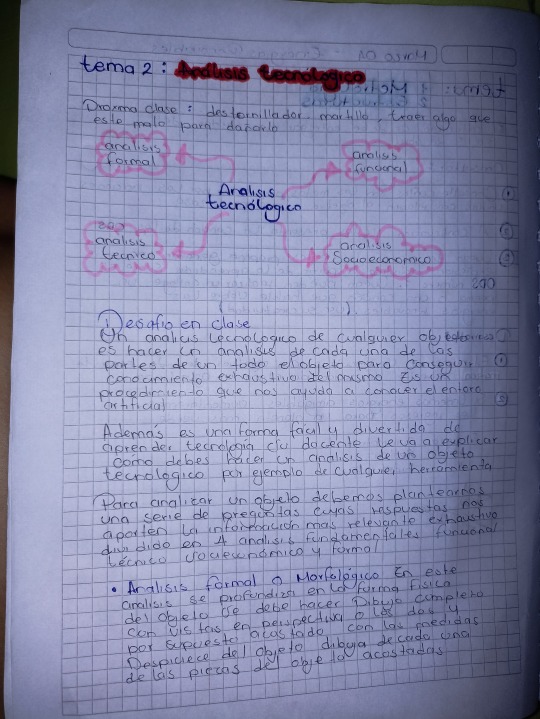 tema 2: Análisis tecnológico
Proxma clase: destornillador, martillo, traer algo que
este malo para dañarlo
analisis
formal
analisis
funcional
Analisis
tecnólogico
analisis
tecnico
analisis
Socioeconomico
Desafio en clase
Un analicis tecnologico de cualquier objeto
es hacer un analisis de cada una de las
partes de un todo el objeto para conseguir
conocimiento exhaustivo del mismo Es un
procedimiento que nos ayuda a conocer el entorno
artificial
Además es una forma facil y divertida de
aprender tecnologia c/u docente le va a explicar
como debes hacer un analisis de un objeto
tecnologico por ejemplo de cualquier herramienta
Para analizar un objeto debemos plantearnos
una serie de preguntas cuyas respuestas nos
aporten la información mas relevante exhaustivo
dividido en 4 analisis fundamentales funcional
técnico socioeconómico y formal
• Analisis formal o Morfológico En este
analisis se profundiza en la forma física
del objeto se debe hacer Dibujo completo
con vistas en perspectiva o los dos y
por supuesto acostado con las medidas
Despiece del objeto dibuja de cada una
de las piezas del objeto acostadas